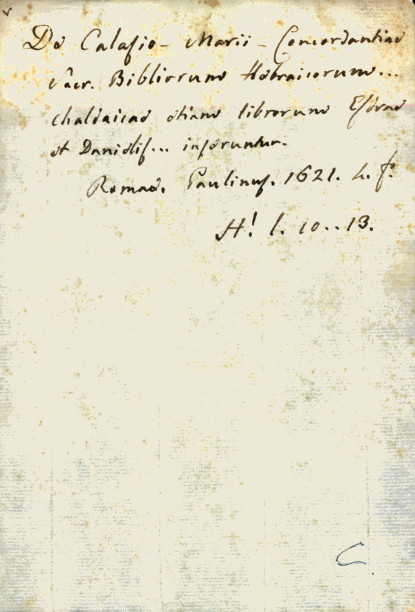 De Calasio – Marii – Concordantiae
Sacr. Bibliorum Hebraicorum...
chaldaicae etiam librorum Esdrae
et Danielis... inseruntur.
Romae. Paulinus. 1621. 4. f.
H! l. 10..13.
C